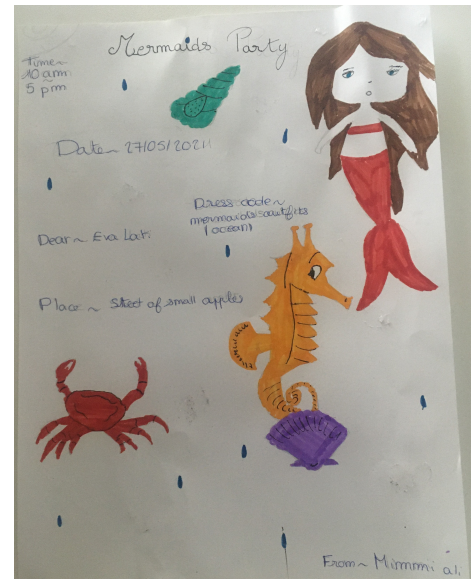 Mermaids Party
Time~
10 am
5 pm
Date~ 27/05/2021
Dress code~
mermaids outfits
(ocean)
Dear~ Eva Lat.
Place~ Street of small apples
From~ Mimmmi ali